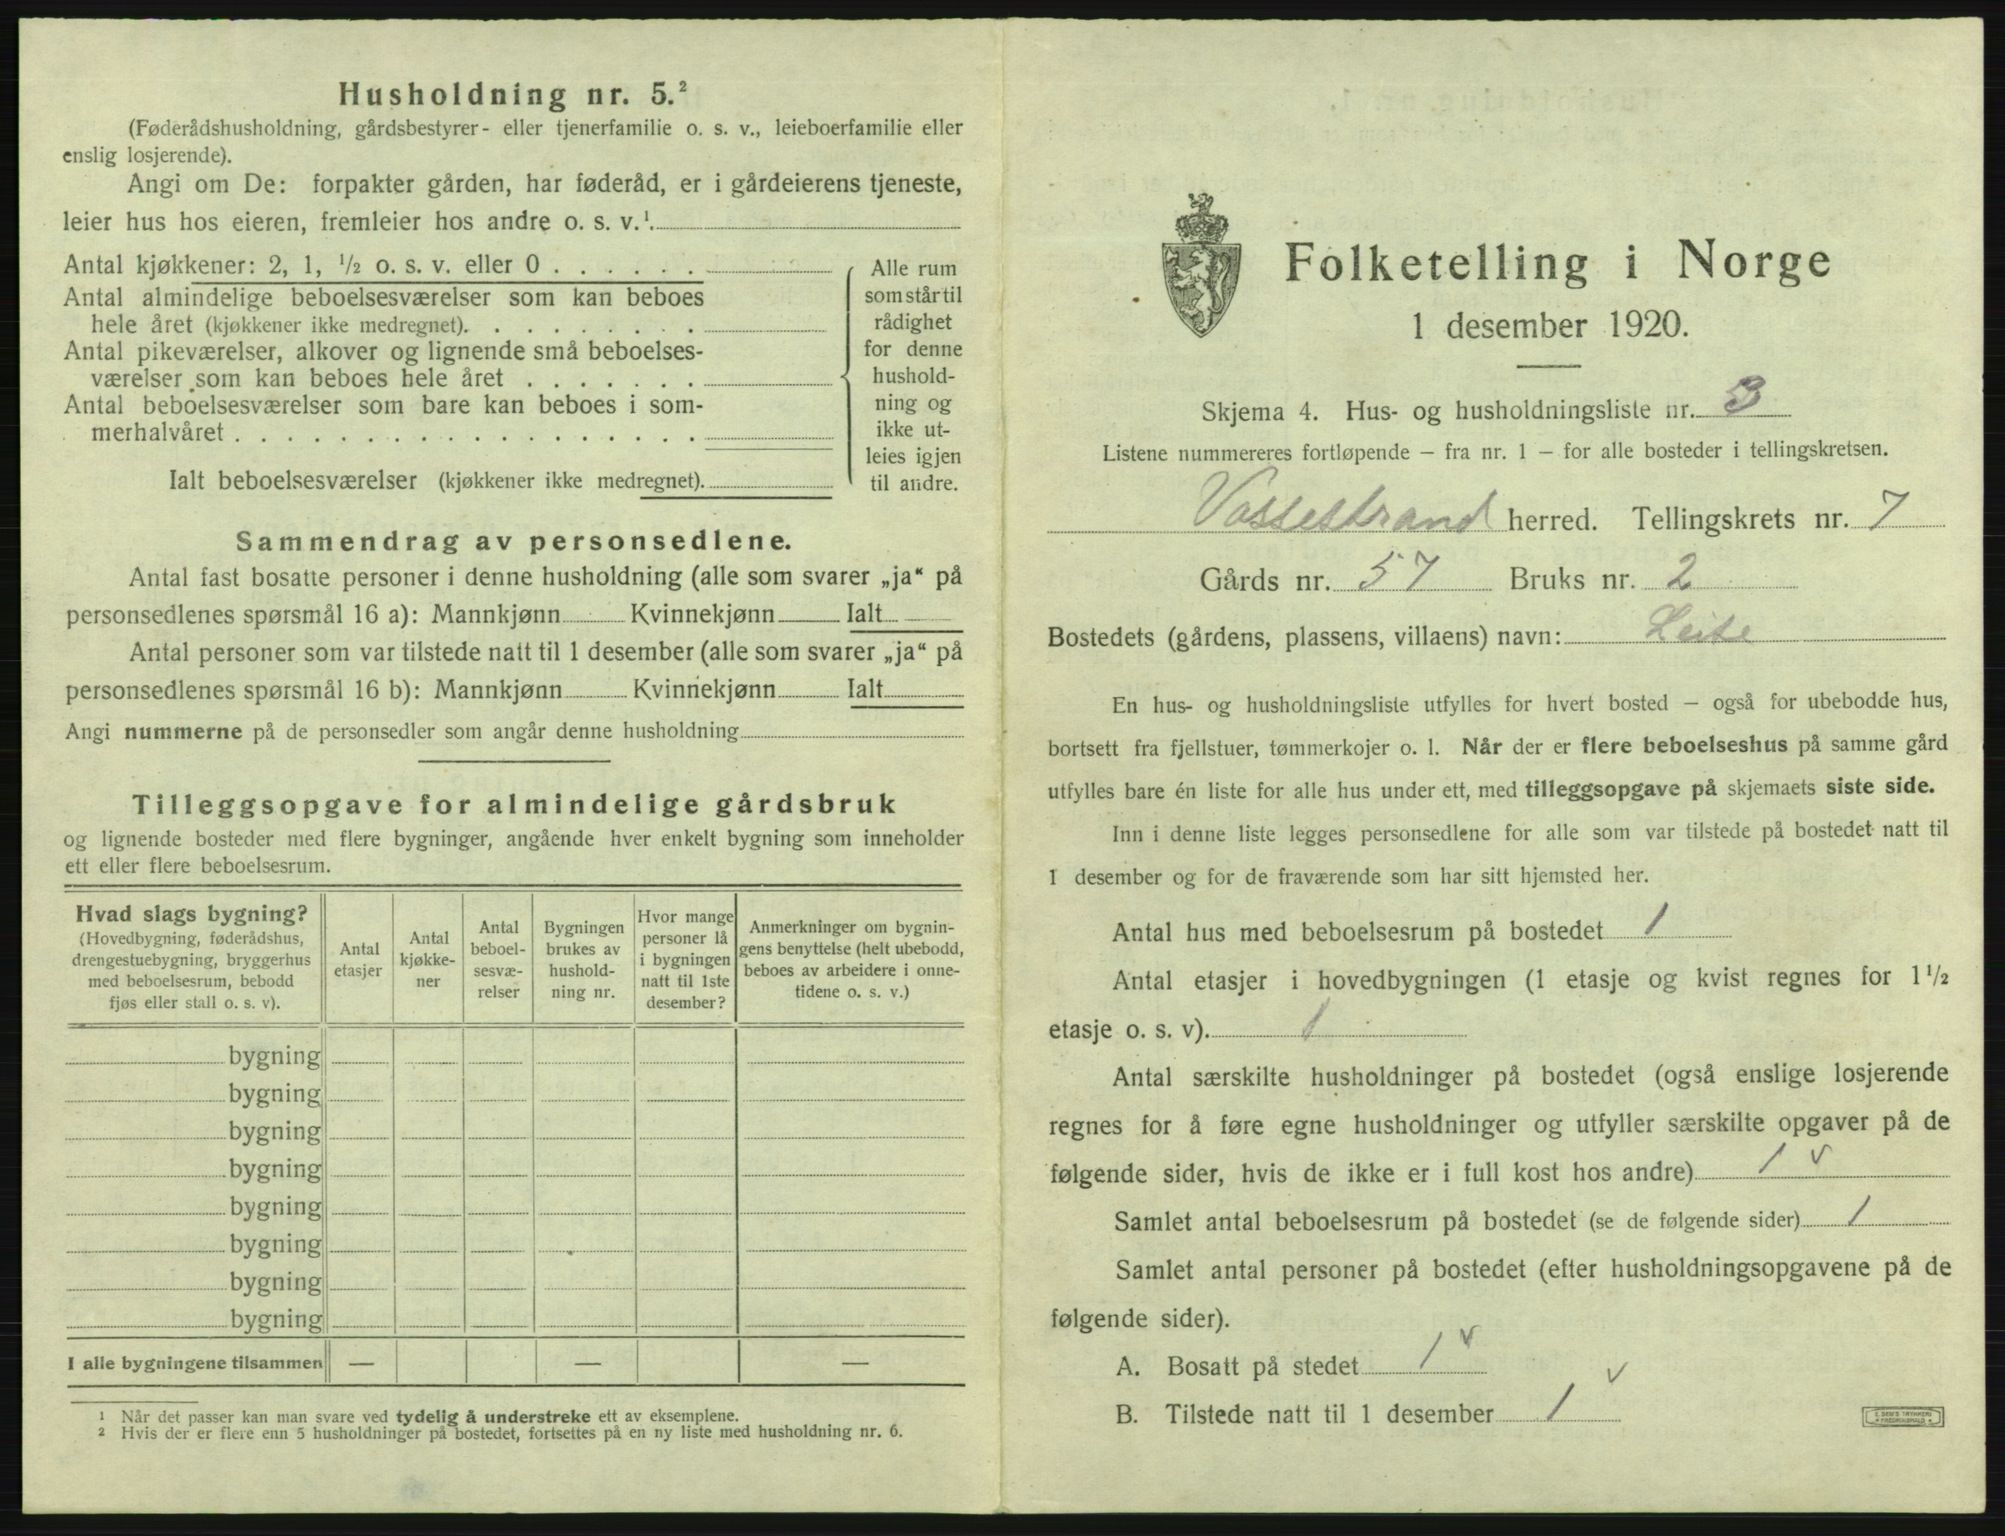 Husholdning nr. 5.²
(Føderådshusholdning, gårdsbestyrer- eller tjenerfamilie o. s. v., leieboerfamilie eller
enslig losjerende).
Angi om De: forpakter gården, har føderåd, er i gårdeierens tjeneste,
leier hus hos eieren, fremleier hos andre o. s. v.¹.
Antal kjøkkener: 2, 1, ½ o. s. v. eller 0 . . . . . .
Antal almindelige beboelsesværelser som kan beboes
hele året (kjøkkener ikke medregnet). . . . . . . . .
Antal pikeværelser, alkover og lignende små beboelses-
værelser som kan beboes hele året . . . . . . .
Antal beboelsesværelser som bare kan beboes i som-
merhalvåret . . . . . . . . . . . . . . . . . .
Ialt beboelsesværelser (kjøkkener ikke medregnet).
Alle rum
som står til
rådighet
for denne
hushold-
ning og
ikke ut-
leies igjen
til andre.
Sammendrag av personsedlene.
Antal fast bosatte personer i denne husholdning (alle som svarer „ja“ på
personsedlenes spørsmål 16 a): Mannkjønn Kvinnekjønn Ialt
Antal personer som var tilstede natt til 1 desember (alle som svarer „ja“ på
personsedlenes spørsmål 16 b): Mannkjønn Kvinnekjønn Ialt
Angi nummerne på de personsedler som angår denne husholdning
Tilleggsopgave for almindelige gårdsbruk
og lignende bosteder med flere bygninger, angående hver enkelt bygning som inneholder
ett eller flere beboelsesrum.
Hvad slags bygning?
(Hovedbygning, føderådshus,
drengestuebygning, bryggerhus
med beboelsesrum, bebodd
fjøs eller stall o. s. v).
Antal
etasjer
Antal
kjøkke-
ner
Antal
beboel-
sesvæ-
relser
Bygningen
brukes av
hushold-
ning nr.
Hvor mange
personer lå
i bygningen
natt til 1ste
desember?
Anmerkninger om bygnin-
gens benyttelse (helt ubebodd,
beboes av arbeidere i onne-
tidene o. s. v.)
bygning
bygning
bygning
bygning
bygning
bygning
bygning
bygning
I alle bygningene tilsammen — — —
¹ Når det passer kan man svare ved tydelig å understreke ett av eksemplene.
² Hvis der er flere enn 5 husholdninger på bostedet, fortsettes på en ny liste med husholdning nr. 6.
Folketelling i Norge
1 desember 1920.
Skjema 4. Hus- og husholdningsliste nr. 3
Listene nummereres fortløpende – fra nr. 1 – for alle bosteder i tellingskretsen.
Vossestrand herred. Tellingskrets nr. 7
Gårds nr. 57 Bruks nr. 2
Bostedets (gårdens, plassens, villaens) navn: Leite
En hus- og husholdningsliste utfylles for hvert bosted – også for ubebodde hus,
bortsett fra fjellstuer, tømmerkojer o. l. Når der er flere beboelseshus på samme gård
utfylles bare én liste for alle hus under ett, med tilleggsopgave på skjemaets siste side.
Inn i denne liste legges personsedlene for alle som var tilstede på bostedet natt til
1 desember og for de fraværende som har sitt hjemsted her.
Antal hus med beboelsesrum på bostedet 1
Antal etasjer i hovedbygningen (1 etasje og kvist regnes for 1½
etasje o. s. v). 1
Antal særskilte husholdninger på bostedet (også enslige losjerende
regnes for å føre egne husholdninger og utfyller særskilte opgaver på de
følgende sider, hvis de ikke er i full kost hos andre) 1 v
Samlet antal beboelsesrum på bostedet (se de følgende sider) 1
Samlet antal personer på bostedet (efter husholdningsopgavene på de
følgende sider).
A. Bosatt på stedet 1 v
B. Tilstede natt til 1 desember 1 v